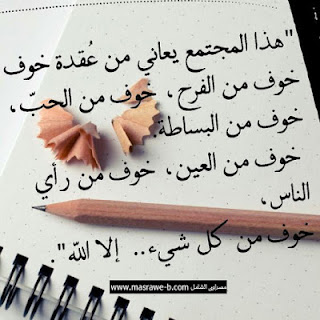 "هذا المجتمع يعاني من عُقدة خوف
خوف من الفرح، خوف من الحبّ،
خوف من البساطة.
خوف من العين، خوف من رأي
الناس،
خوف من كل شيء.. إلا الله".
مصراوى الشامل www.masrawe-b.com